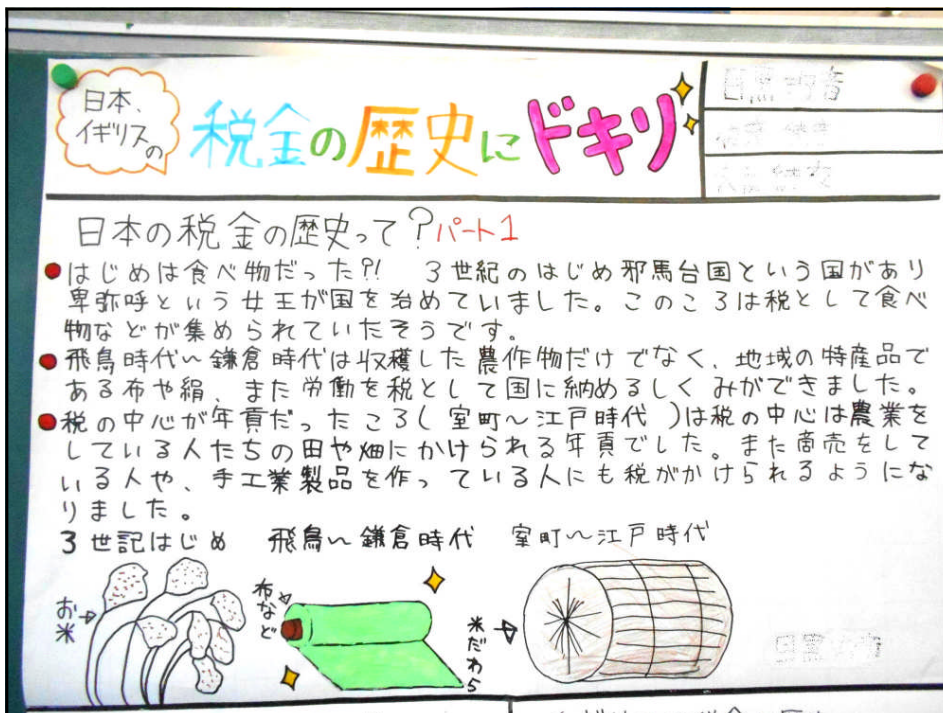 日本、
イギリスの
税金の歴史にドキリ
日本の税金の歴史って?パート1
はじめは食べ物だった?! 3世紀のはじめ邪馬台国という国があり
卑弥呼という女王が国を治めていました。このころは税として食べ
物などが集められていたそうです。
飛鳥時代~鎌倉時代は収穫した農作物だけでなく、地域の特産品で
ある布や絹、また労働を税として国に納めるしくみができました。
税の中心が年貢だったころ(室町~江戸時代)は税の中心は農業を
している人たちの田や畑にかけられる年貢でした。また商売をして
いる人や、手工業製品を作っている人にも税がかけられるようにな
りました。
3世記はじめ 飛鳥~鎌倉時代 室町~江戸時代
お米
布など
米だわら